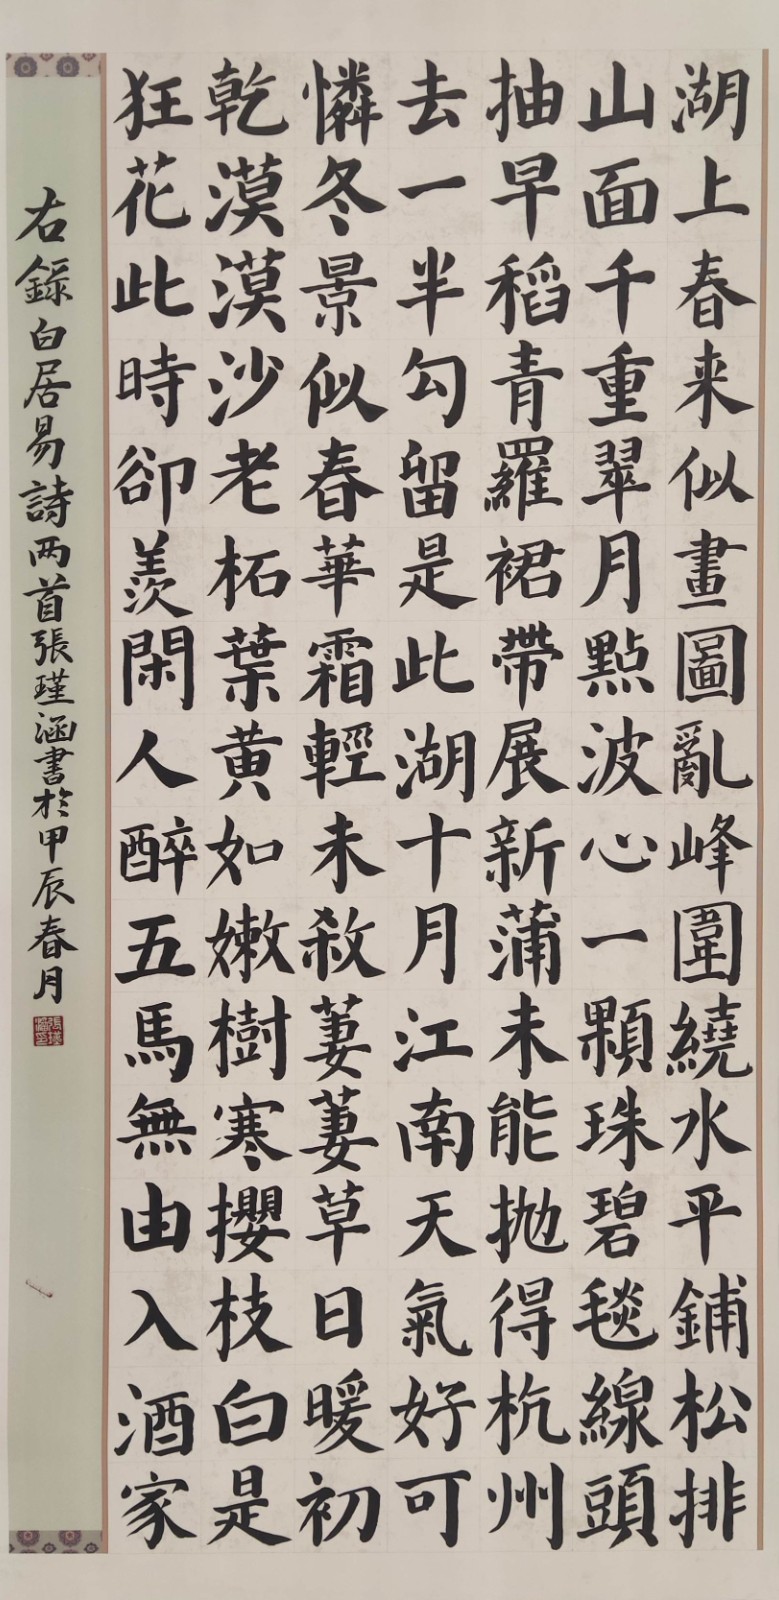 湖上春来似畫圖亂峰圍繞水平鋪松排
山面千重翠月點波心一顆珠碧毯線頭
抽早稻青羅裙帶展新蒲未能抛得杭州
去一半勾留是此湖十月江南天氣好可
憐冬景似春華霜輕未殺萋萋草日暖初
乾漠漠沙老柘葉黄如嫩樹寒攖枝白是
狂花此時卻羨閑人醉五馬無由入酒家
右錄白居易詩两首張瑾涵書於甲辰春月